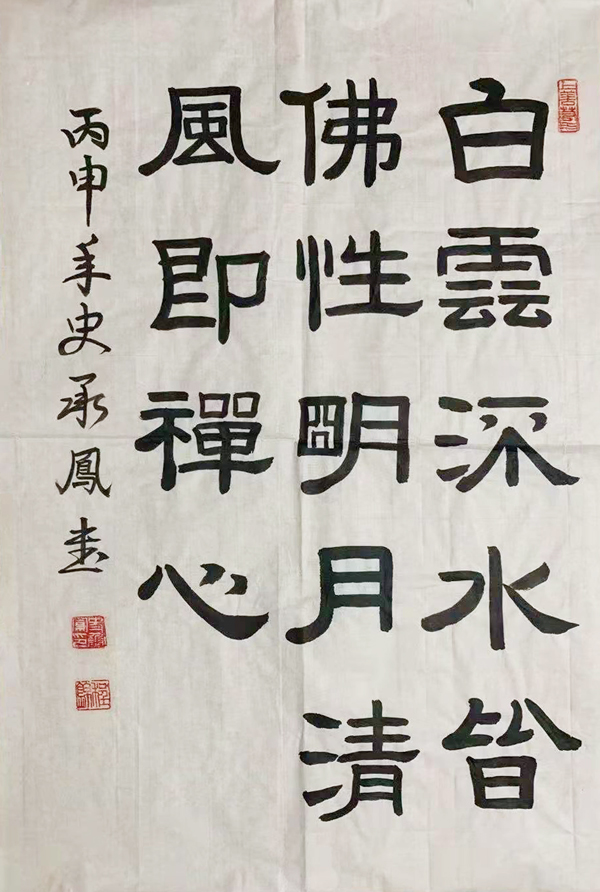 白雲流水皆
佛性明月清
風即禪心
丙申年史承鳳書